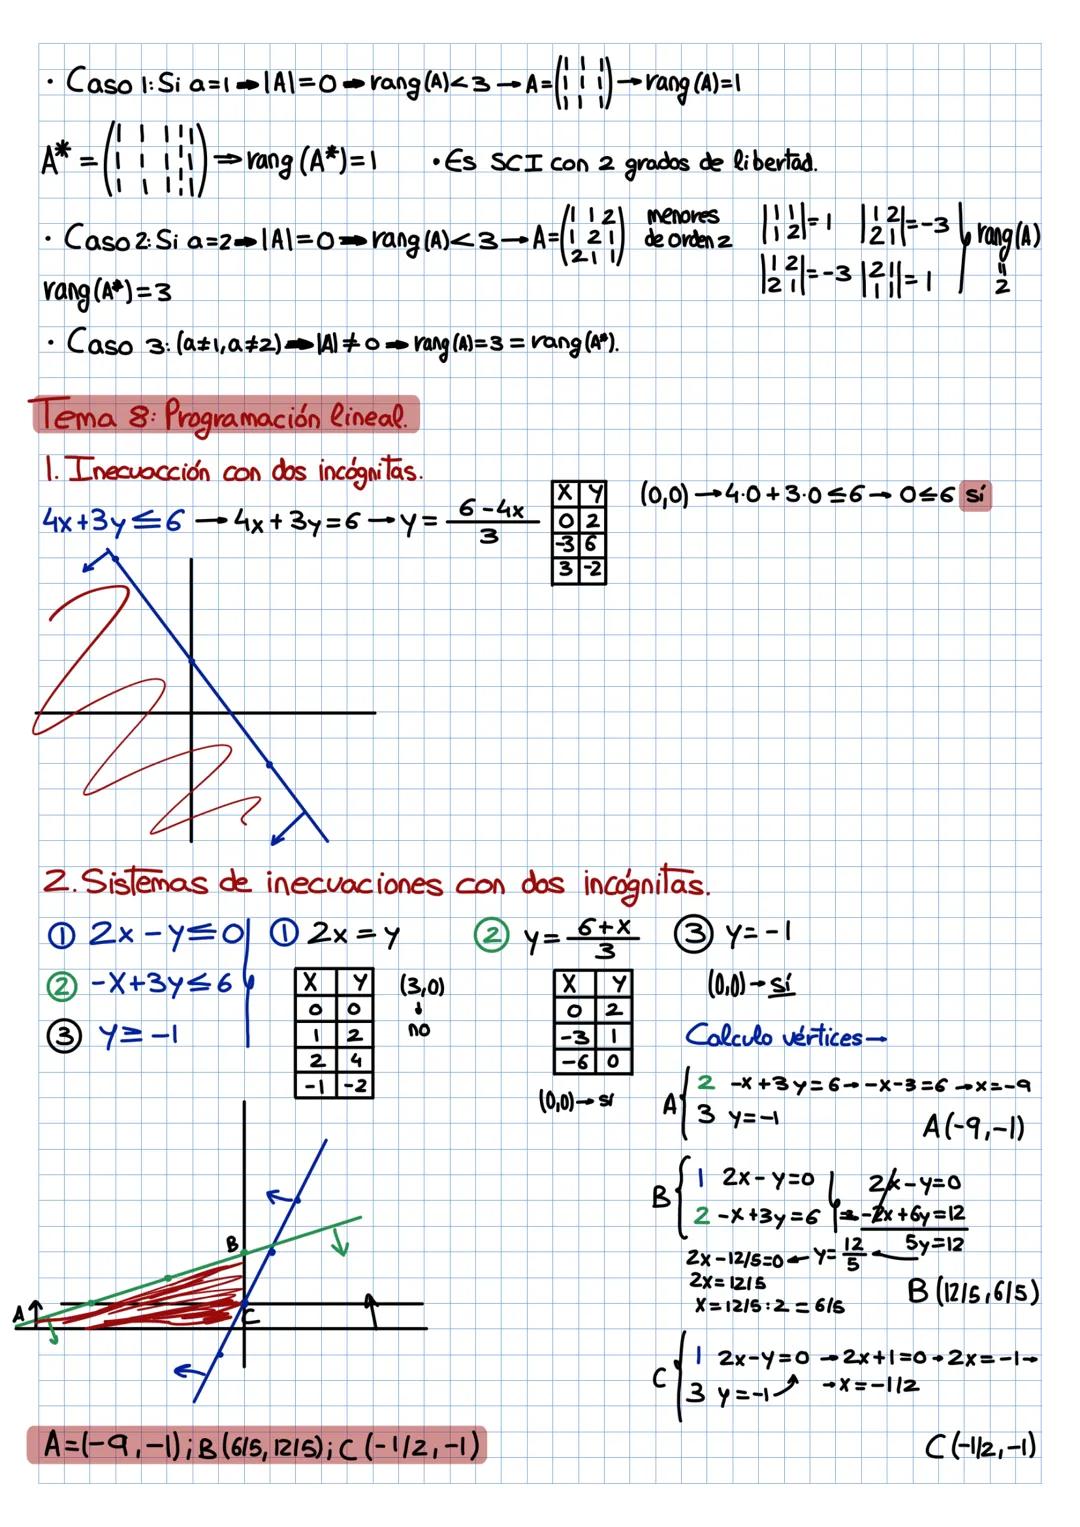 · Caso 1: Si a=1 ➡ |A|=0 ➡ rang(A)<3 → A=(1 1 1 / 1 1 1 / 1 1 1) → rang(A)=1
A* = (1 1 1 ¦ 1 / 1 1 1 ¦ 1 / 1 1 1 ¦ 1) ⇒ rang (A*)=1 · Es SCI con 2 grados de libertad.
· Caso 2: Si a=2 ➡ |A|=0 ➡ rang(A)<3 → A=(1 1 2 / 1 2 1 / 2 1 1) menores de orden 2 |1 1 / 1 2|=1 |1 2 / 2 1|=-3 |1 2 / 2 1|=-3 |2 1 / 1 1|=1 rang(A) = 2
rang(A*)=3
· Caso 3: (a≠1, a≠2) ➡ |A|≠0 ➡ rang(A)=3=rang(A*).
Tema 8: Programación lineal.
1. Inecuacción con dos incógnitas.
4x+3y≤6 → 4x+3y=6 → y = (6-4x)/3
X Y
0 2
-3 6
3 -2
(0,0) → 4·0+3·0≤6 → 0≤6 sí
2. Sistemas de inecuaciones con dos incógnitas.
① 2x-y≤0
② -x+3y≤6
③ y≥-1
① 2x=y
X Y
0 0
1 2
2 4
-1 -2
(3,0)
↓
no
② y = (6+x)/3
X Y
0 2
-3 1
-6 0
(0,0) → sí
③ y=-1
(0,0) → sí
Calculo vértices →
A { 2 -x+3y=6 → -x-3=6 → x=-9
3 y=-1
A(-9,-1)
B { 1 2x-y=0 2x-y=0
2 -x+3y=6 = -2x+6y=12
5y=12
2x-12/5=0 ← y=12/5 ←
2x=12/5
x=12/5:2=6/5
B(12/5,6/5)
C { 1 2x-y=0 → 2x+1=0 → 2x=-1 →
3 y=-1 → x=-1/2
C(-1/2,-1)
B
A
C
A=(-9,-1); B(6/5,12/5); C(-1/2,-1)